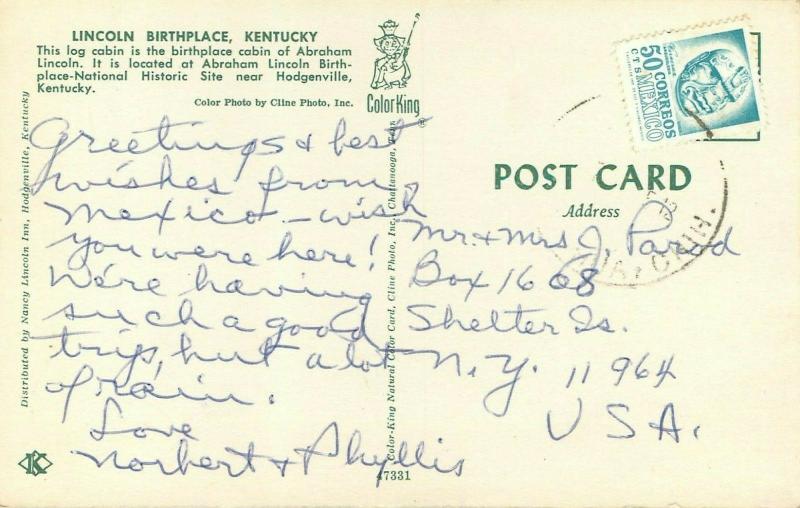 LINCOLN BIRTHPLACE, KENTUCKY
This log cabin is the birthplace cabin of Abraham
Lincoln. It is located at Abraham Lincoln Birth-
place-National Historic Site near Hodgenville,
Kentucky.
Color Photo by Cline Photo, Inc.
ColorKing
®
Greetings & best
wishes from
Mexico - wish
you were here!
We're having
such a good
trip, but a lot
of rain.
Love
Norbert & Phyllis
Distributed by Nancy Lincoln Inn, Hodgenville, Kentucky
Color-King Natural Color Card, Cline Photo, Inc., Chattanooga, Tenn.
K
47331
50 CORREOS
CTS MEXICO
POST CARD
Address
Mr. & Mrs J.
Box 1608
Shelter Is.
N.Y. 11964
USA.